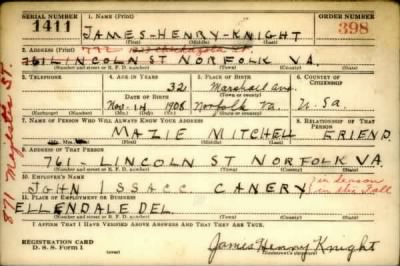 SERIAL NUMBER 1. NAME (Print) ORDER NUMBER
1411 JAMES-HENRY-KNIGHT 398
(First) (Middle) (Last)
2. ADDRESS (Print) 772
761 LINCOLN ST NORFOLK VA.
(Number and street or R. F. D. number) (Town) (County) (State)
3. TELEPHONE 4. AGE IN YEARS 5. PLACE OF BIRTH 6. COUNTRY OF CITIZENSHIP
32 Marshall ave
DATE OF BIRTH (Town or county)
Nov-14 1908 Norfolk Va. U.Sa.
(Exchange) (Number) (Mo.) (Day) (Yr.) (State or country)
7. NAME OF PERSON WHO WILL ALWAYS KNOW YOUR ADDRESS 8. RELATIONSHIP OF THAT PERSON
MAZIE MITCHELL FRIEND
(Mr., Mrs., Miss) (First) (Middle) (Last)
9. ADDRESS OF THAT PERSON
761- LINCOLN ST NORFOLK VA.
(Number and street or R. F. D. number) (Town) (County) (State)
10. EMPLOYER'S NAME
JOHN ISSACC CANERY
in the Fall
11. PLACE OF EMPLOYMENT OR BUSINESS
ELLENDALE DEL.
(Number and street or R. F. D. number) (Town) (County) (State)
I AFFIRM THAT I HAVE VERIFIED ABOVE ANSWERS AND THAT THEY ARE TRUE.
REGISTRATION CARD
D. S. S. Form 1
James Henry Knight
(Registrant's signature)
871 ST.